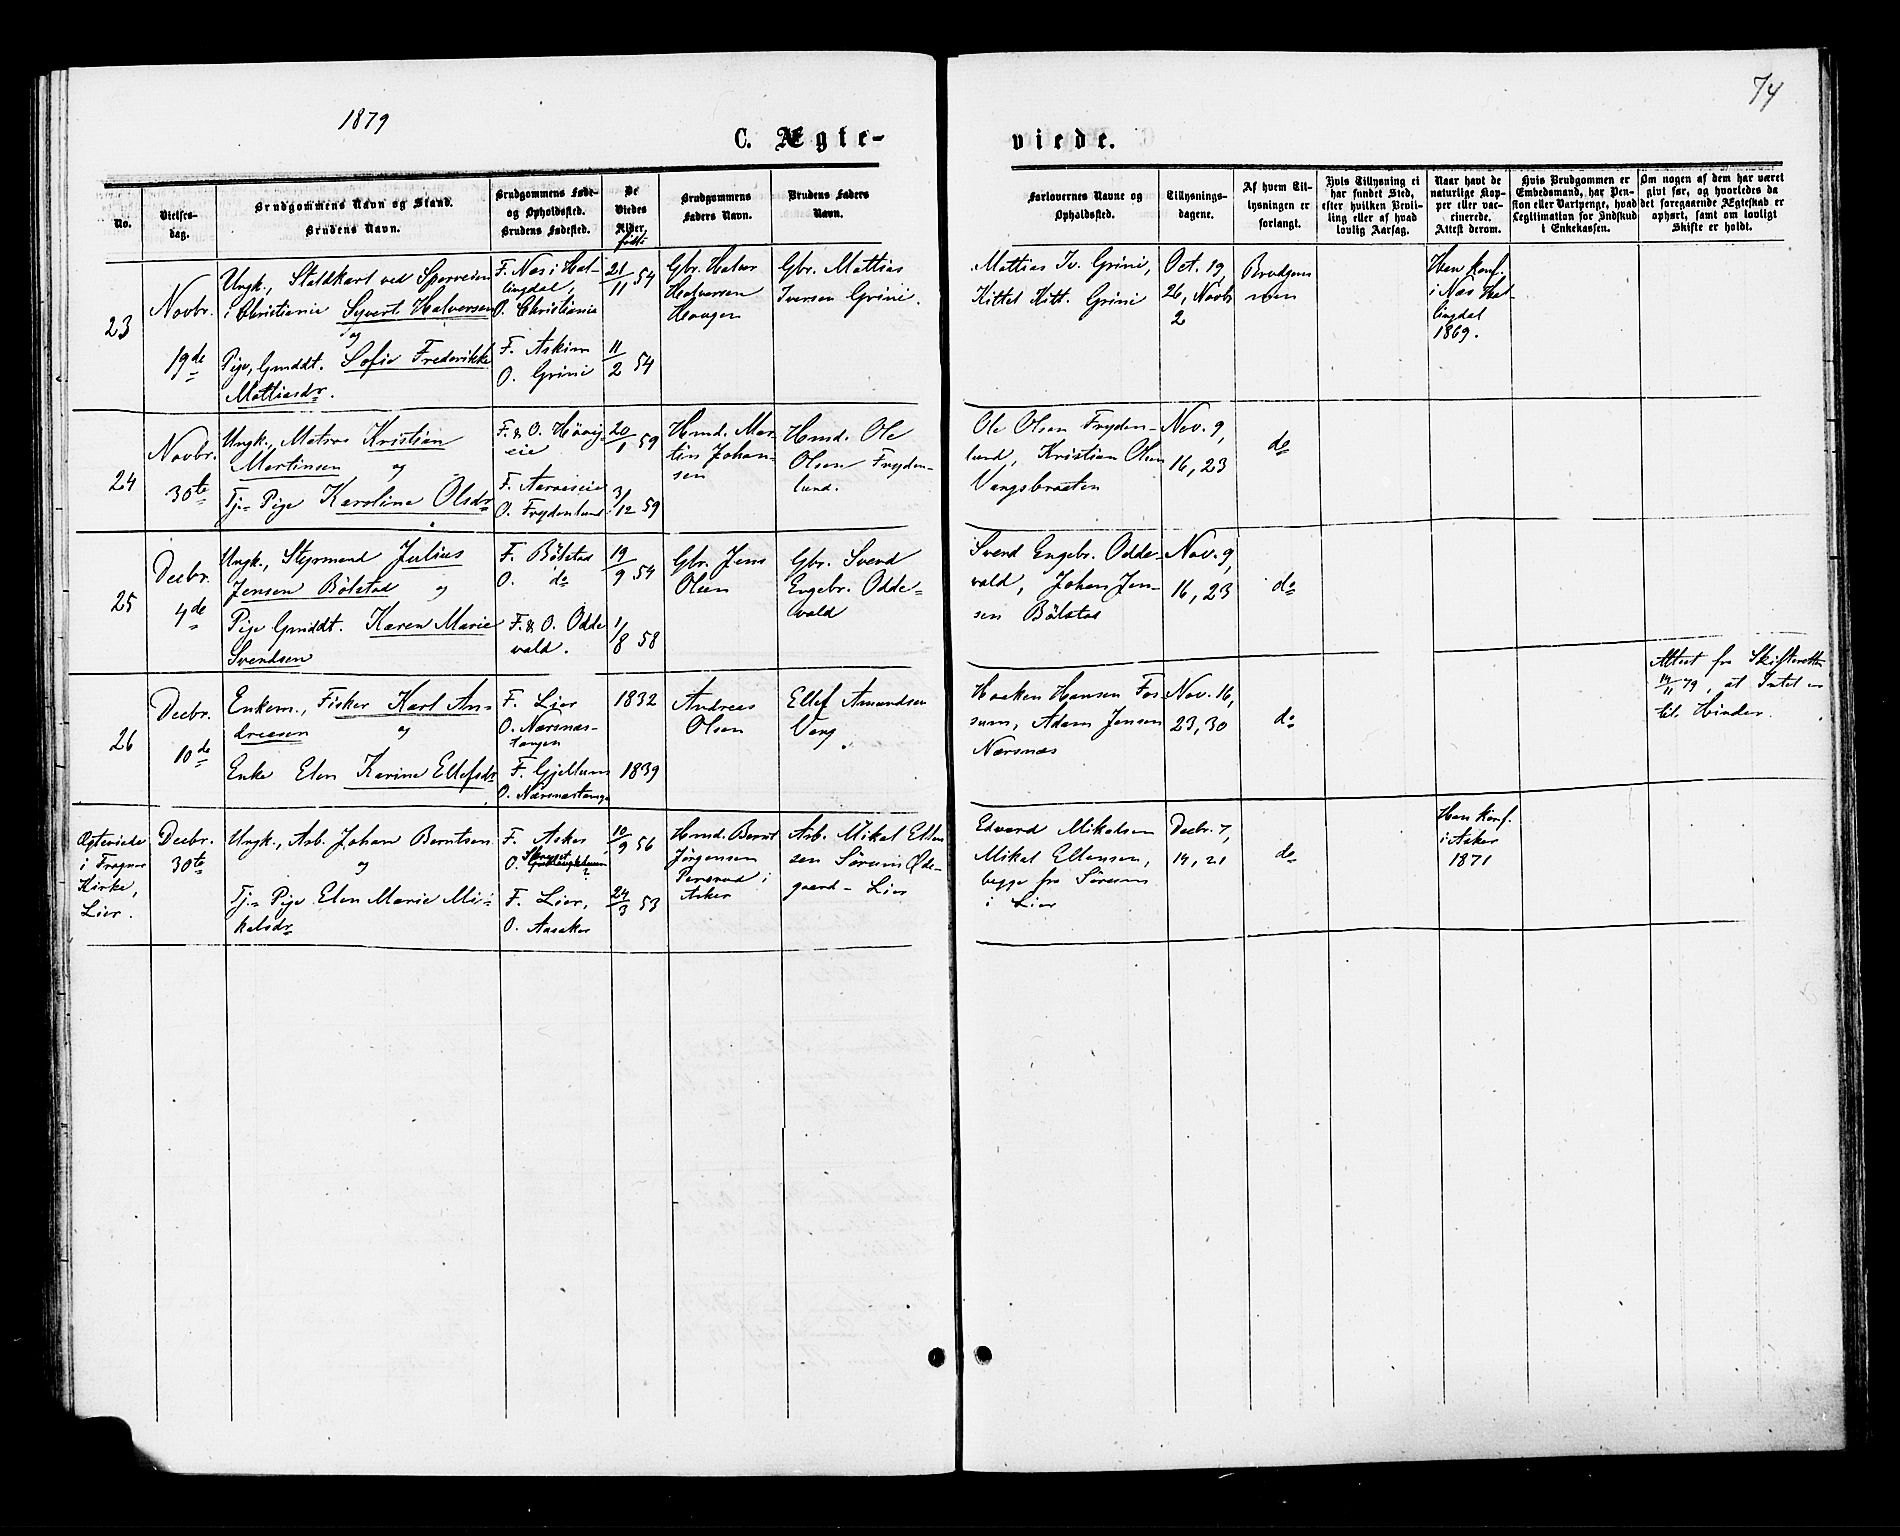 1879
74
C. Ægte-
viede.
No.
Vielses-
dag.
Brudgommens Navn og Stand.
Brudens Navn.
Brudgommens Føde-
og Opholdssted.
Brudens Fødested.
De
Viedes
Alder
født:
Brudgommens
Faders Navn.
Brudens Faders
Navn.
Forlovernes Navne og
Opholdssted.
Tillysnings-
dagene.
Af hvem Til-
lysningen er
forlangt.
Hvis Tillysning ei
har fundet Sted,
efter hvilken Bevil-
ling eller af hvad
lovlig Aarsag.
Naar havt de
naturlige Kop-
per eller vac-
cinerede.
Attest derom.
Hvis Brudgommen er
Embedsmand, har Pen-
sion eller Vartpenge, hvad
Legitimation for Indskud
i Enkekassen.
Om nogen af dem har været
givt før, og hvorledes da
det foregaaende Ægteskab er
ophørt, samt om lovligt
Skifte er holdt.
23
Novbr.
19de
Ungk., Staldkarl ved Sporveien
i Christiania Syvert Halvorsen
og
Pige, Gmddt. Sofie Frederikke
Mattiasdr.
F. Næs i Hal-
lingdal,
O. Christiania
F. Askim
O. Grini
21/11 54
11/2 54
Gbr. Halvor
Halvorsen
Haagen
Gbr. Mattias
Iversen Grini.
Mattias Iv. Grini,
Kittel Kitt. Grini
Oct. 19,
26, Novb.
2
Brudgom
men
Han konf.
i Næs Hal
lingdal
1869.
24
Novbr.
30te
Ungk., Matros Kristian
Martinsen og
Tj. Pige Karoline Olsdr
F. & O. Høvig
eie
F. Aaroseie
O. Frydenlund
20/1 59
3/12 59
Hmd. Mar-
tin Johan-
sen
Hmd. Ole
Olsen Fryden-
lund.
Ole Olsen Fryden-
lund, Kristian Olsen
Vangsbraaten
Nov. 9,
16, 23
do
25
Decbr.
4de
Ungk., Styrmand Julius
Jensen Bølstad og
Pige Gmddt. Karen Marie
Svendsen
F. Bølstad
O. do
F. & O. Odde
vald.
19/9 54
1/8 58
Gbr. Jens
Olsen
Gbr. Svend
Engebr. Odde-
vald
Svend Engebr. Odde-
vald, Johan Jen-
sen Bølstad
Nov. 9,
16, 23
do
26
Decbr.
10de
Enkem., Fisker Karl An-
dreasen og
Enke Elen Karine Ellefsdr
F. Lier
O. Nærsnæs-
tangen
F. Gjellum
O. Nærsnæstange
1832
1839
Andreas
Olsen
Ellef Amundsen
Vang
Haaken Hansen Fos-
sum, Adam Jensen
Nærsnæs
Nov. 16,
23, 30
do
Attest fra Skifteretten
14/11 79, at Intet er
til Hinder.
Ægteviede
i Frogner
Kirke,
Lier.
Decbr.
30te
Ungk., Arb. Johan Berntsen
og
Tj. Pige Elen Marie Mi-
kelsdr
F. Asker
O.
F. Lier,
O. Aasaker
10/9 56
24/3 53
Hmd. Bernt
Jørgensen
i
Asker
Arb. Mikal Ellen
sen Sørum Øde-
gaard - Lier
Edvard Mikalsen
Mikal Ellensen,
begge fra Sørum
i Lier
Decbr. 7,
14, 21
do
Han konf.
i Asker
1871